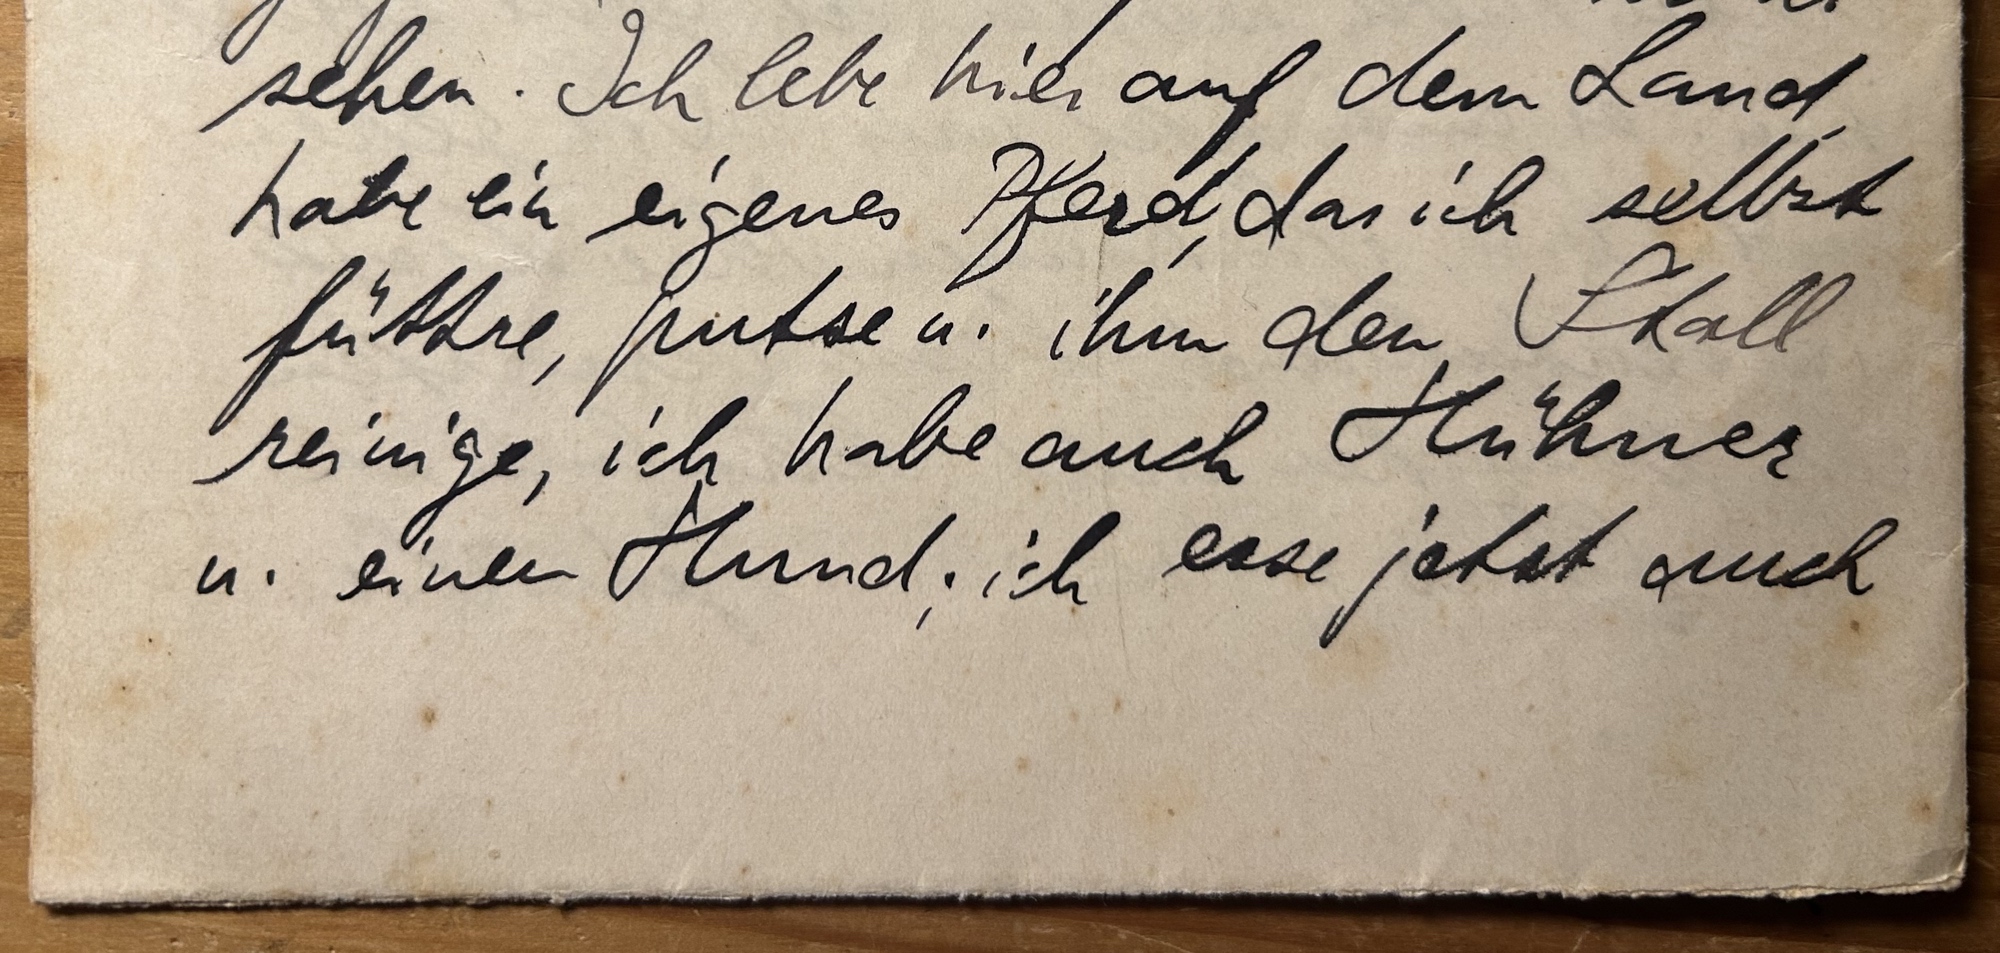 sehen. Ich lebe hier auf dem Land,
habe ein eigenes Pferd, das ich selbst
füttre, putze u. ihm den Stall
reinige, ich habe auch Hühner
u. einen Hund; ich esse jetzt auch